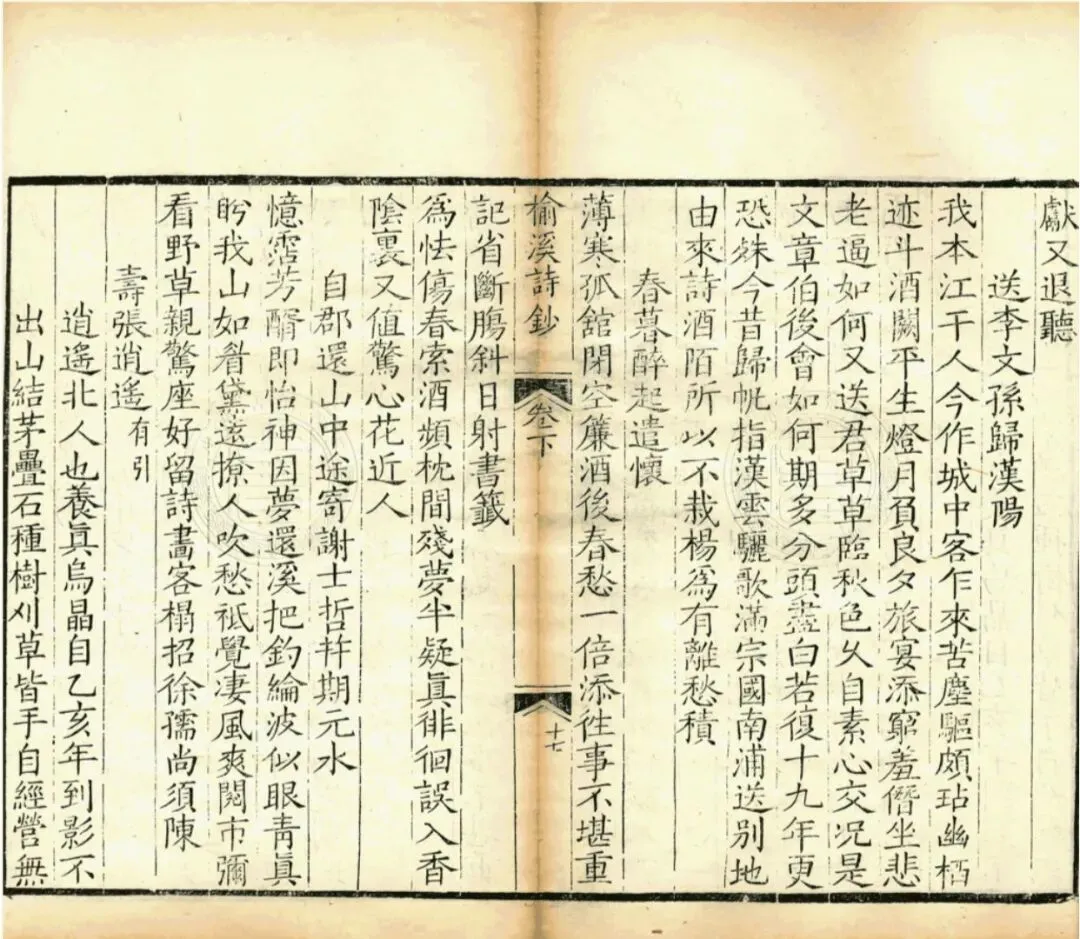 獻又退聽
送李文孫歸漢陽
我本江干人今作城中客乍來苦塵驅頗玷幽栖
迹斗酒闕平生燈月負良夕旅宴添窮羞僭坐悲
老逼如何又送君草草臨秋色乆自素心交况是
文章伯後會如何期多分頭盡白若復十九年更
恐殊今昔歸帆指漢雲驪歌滿宗國南浦送别地
由來詩酒陌所以不栽楊為有離愁積
春暮醉起遣懷
薄寒孤舘閉空簾酒後春愁一倍添徃事不堪重
榆溪詩鈔
卷下
十七
記省斷膓斜日射書籤
為怯傷春索酒頻枕間殘夢半疑眞徘徊誤入香
陰裏又値驚心花近人
自郡還山中途寄謝士哲并期元水
憶霑芳醑即怡神因夢還溪把釣綸波似眼靑眞
盻我山如眷黛遠撩人吹愁祇覺凄風爽閱市彌
看野草親驚座好留詩畵客榻招徐孺尚須陳
壽張逍遙有引
逍遙北人也養眞烏晶自乙亥年到影不
出山結茅疊石種樹刈草皆手自經營無